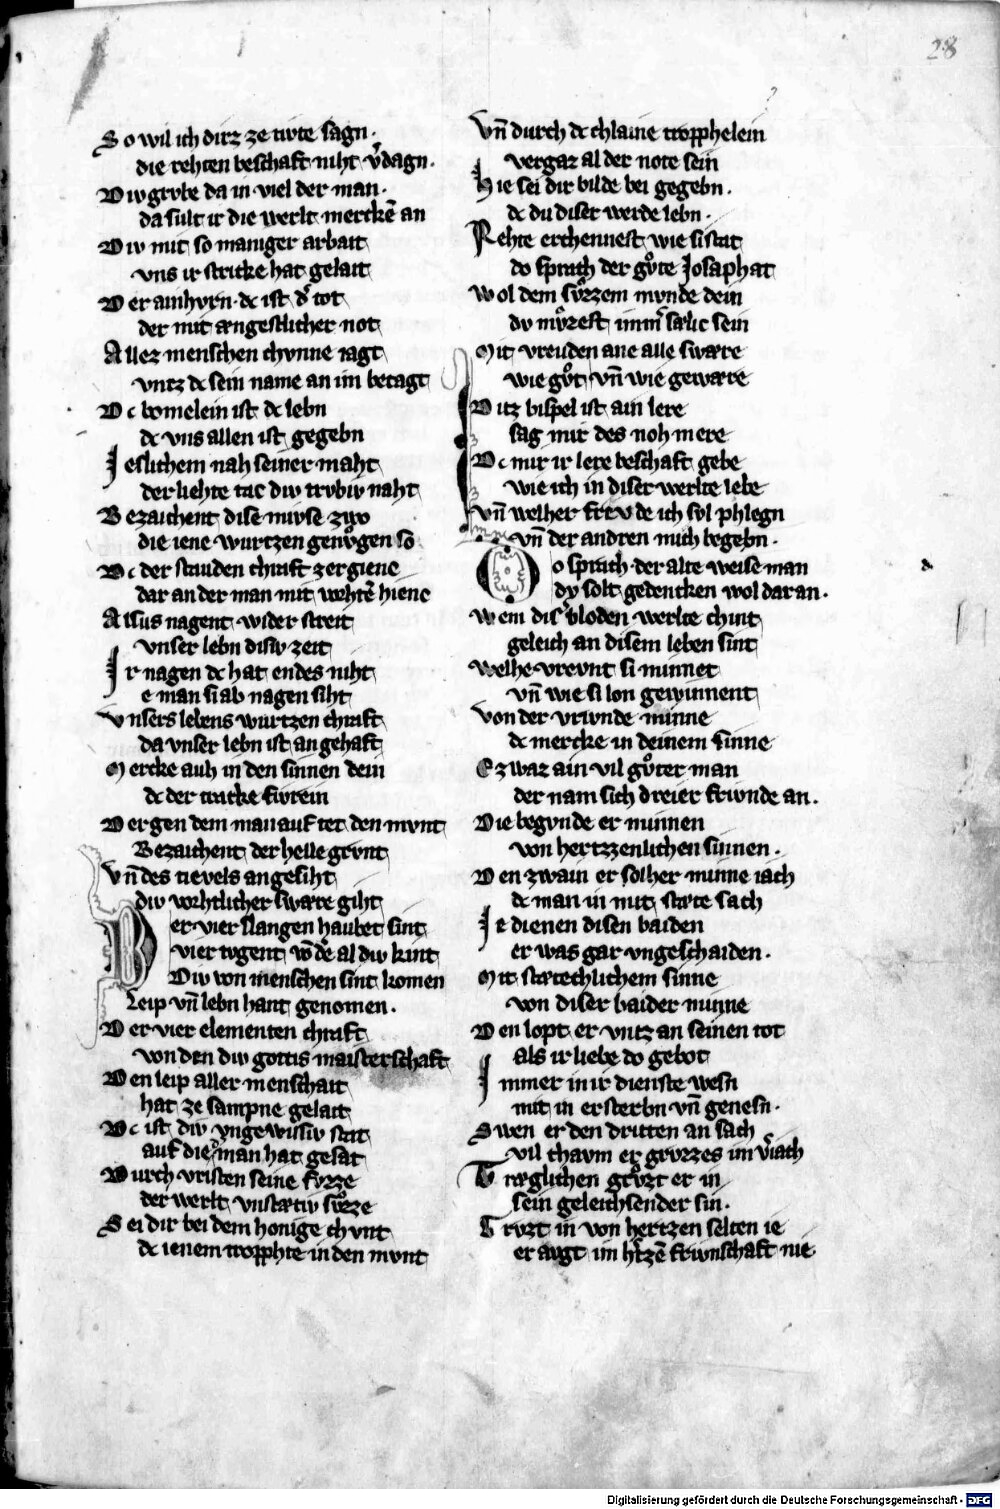 28
So wil ich dirz ze tivte sagn.
die rehten beschaft niht v͛dagn.
Div grvbe da in viel der man.
da sult ir die werlt merckē an
Div mit so maniger arbait
vns ir stricke hat gelait
Der ainhvrn. dc ist d͛ tot
der mit ængestlicher not
Allez menschen chvnne iagt
vntz dc sein name an im betagt
Dc bomelein ist dc lebn
dc vns allen ist gegebn
Jeslichem nah seiner maht
der liehte tac div trvbiv naht
Bezaichent dise mivse zwo
die iene wurtzen genůgen so
Dc der stauden chraft zergiene
dar an der man mit vehtē hienc
Alsus nagent wider streit
vnser lebn disiv zeit
Ir nagen dc hat endes niht
e man si ab nagen siht
Vnsers lebens wurtzen chraft
da vnser lebn ist an gehaft
Mercke auh in den sinnen dein
dc der tracke fivrein
Der gen dem man auf tet den mvnt
Bezaichent der helle grvnt
Vn̄ des tievels angesiht
div vorhtlicher swære giht
Der vier slangen haubet sint
vier tvgent wͦd͛e al div kint
Div von menschen sint komen
Leip vn̄ lebn hant genomen.
Der vier elementen chraft
von den div gottis maisterschaft
Den leip aller menschait
hat ze sampne gelait
Dc ist div vngewissiv stat
auf die d͛ man hat gesat
Durch vristen seine fvzze
der werlt vnstætiv sůzze
Sei dir bei dem honige chvnt
dc ienem tropphte in den mvnt
Vn̄ durch dc chlaine tropphelein
vergaz al der note sein
Hie sei dir bilde bei gegebn.
dc du diser werde lebn.
Rehte erchennest wie si stat
do sprach der gůte Josaphat
Wol dem sůzzem mvnde dein
dv můzest imm͛ sælic sein
Mit vreuden ane alle swære
wie gůt vn̄ wie gewære
Ditz bispel ist ain lere
sag mir des noh mere
Dc mir ir lere beschaft gebe
wie ich in diser werlte lebe
Vn̄ welher frevde ich sol phlegn
vn̄ der andren mich begebn.
Do sprach der alte weise man
dv solt gedencken wol dar an.
Wem dis͛ bloden werlte chint
geleich an disem leben sint
Welhe vrevnt si minnet
vn̄ wie si lon gewinnent
Von der vrivnde minne
dc mercke in deinem sinne
Ez waz ain vil gůter man
der nam sich dreier frivnde an.
Die begvnde er minnen
von hertzzenlichen sinnen.
Den zwain er solher minne iach
dc man in mit stæte sach
Je dienen disen baiden
er was gar vngeschaiden.
Mit stætechlichem sinne
von diser baider minne
Den lopt er vntz an seinen tot
als ir liebe do gebot
Immer in ir dienste wesn
mit in ersterbn vn̄ genesn.
Swen er den dritten an sach
vil chavm er grvzzes im v͛iach
Træglichen grůzt er in
sein geleichsender sin.
Grvzt in von hertzen selten ie
er avgt im h͛tzē frivnschaft nie.
Digitalisierung gefördert durch die Deutsche Forschungsgemeinschaft - DFG